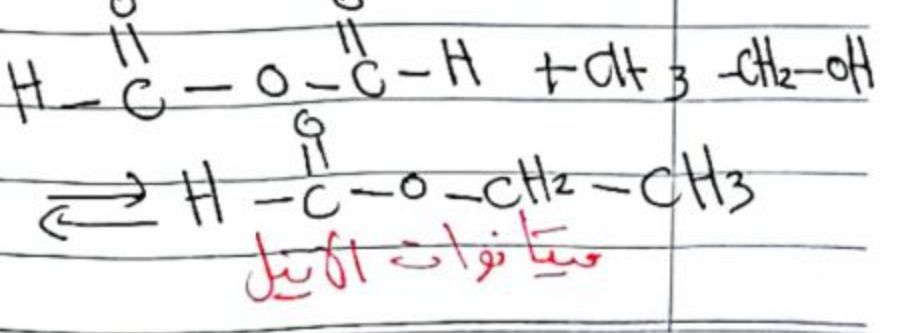 O O
H – C – O – C – H + CH3 – CH2 – OH
O
⇌ H – C – O – CH2 – CH3
ميتانوات الاتيل